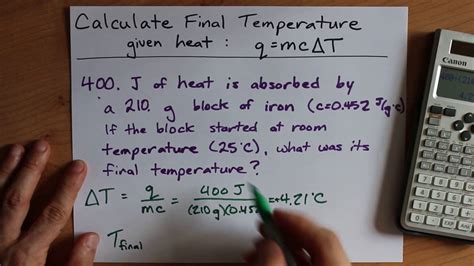 Calculate Final Temperature
given heat : q=mcΔT
400. J of heat is absorbed by
a 210. g block of iron (c=0.452 J/g·°C)
If the block started at room
temperature (25°C), what was its
final temperature?
ΔT = q/mc = 400 J/(210g)(0.452 = +4.21°C
T final
Canon